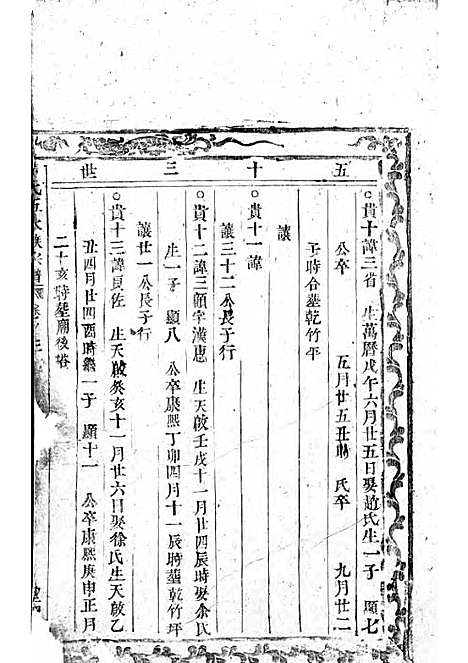 五十三世
○貴十諱三省 生萬曆戊午六月廿五日娶趙氏生一子 顯七
公卒 五月廿五丑時 氏卒 九月廿二
子時合塟乾竹坪
讓
○貴十一諱
讓三十二公長子行
○貴十二諱三顧字漢惠 生天啟壬戌十一月廿四辰時娶余氏
生一子 顯八 公卒康熙丁卯四月十一辰時塟乾竹坪
讓廿一公長子行
○貴十三諱良佐 生天啟癸亥十一月廿六日娶徐氏生天啟乙
丑四月廿四酉時繼一子 顯十一 公卒康熙庚申正月
二十亥時塟廟後塔
氏五大族宗譜